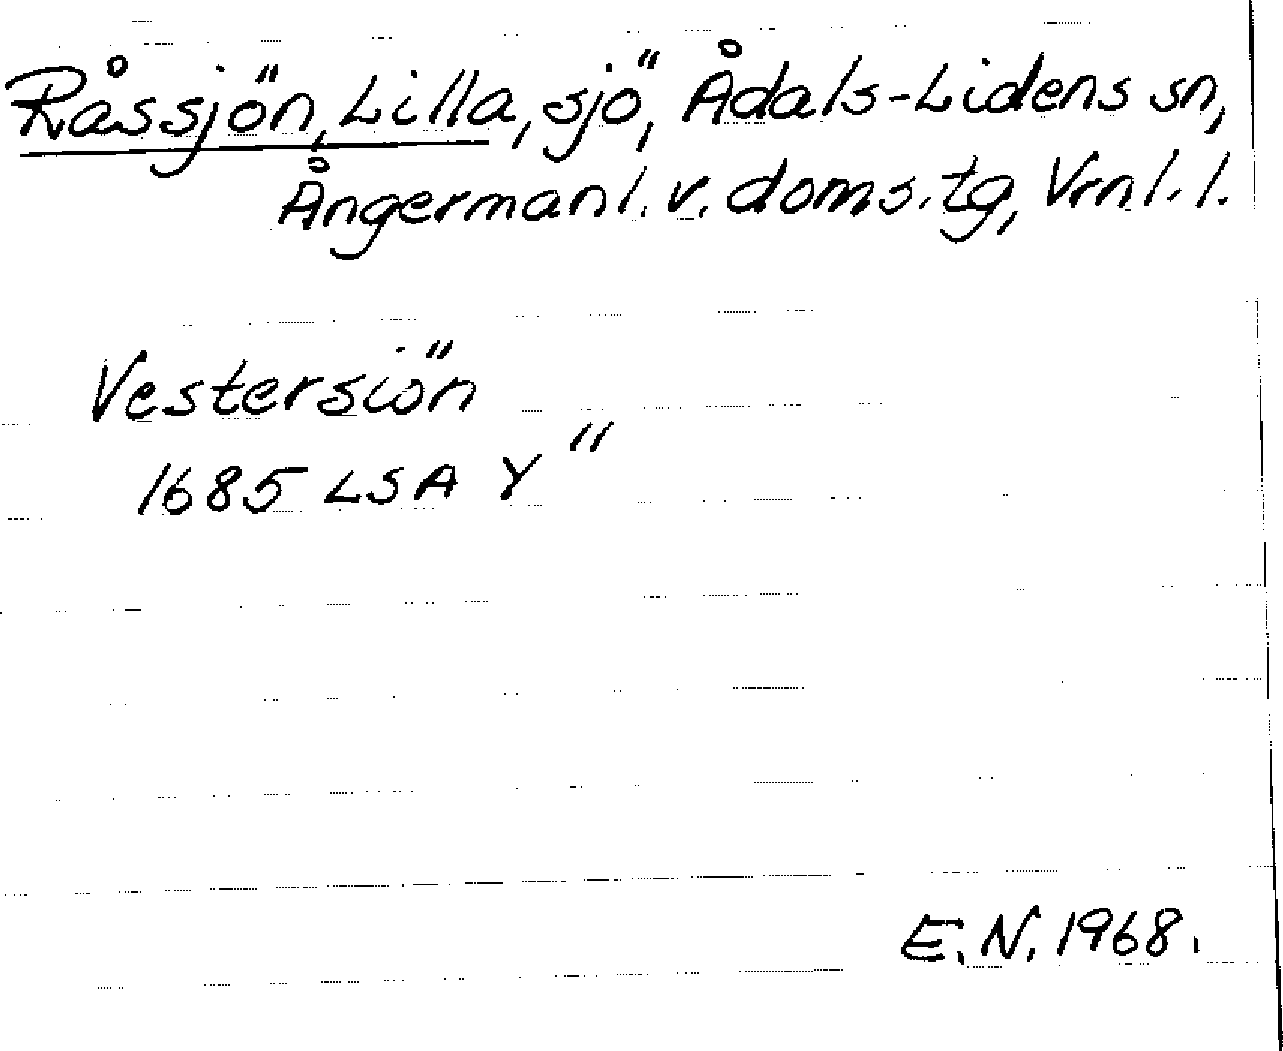 Råssjön, Lilla, sjö, Ådals-Lidens sn,
Ångermanl. v. doms. tg, Vrnl. l.
Vestersiön
1685 LSA Y"
E. N. 1968.